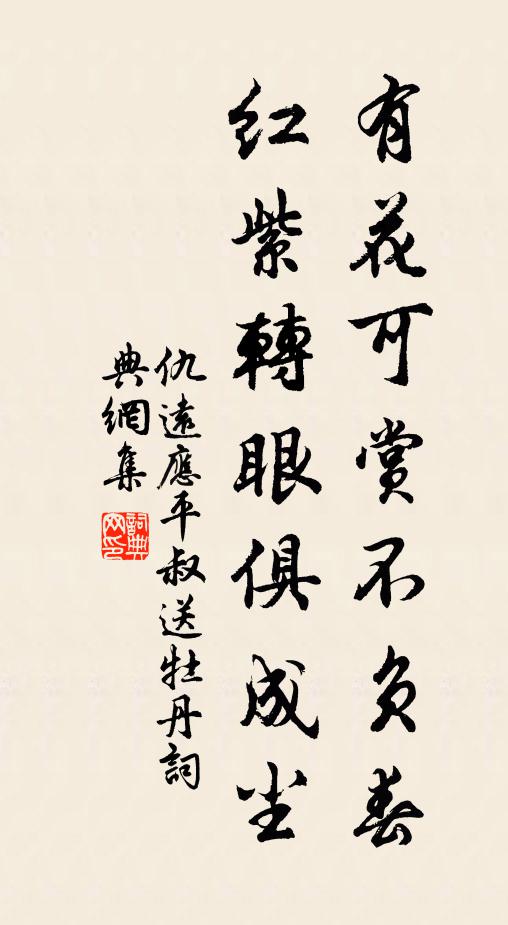 有花可賞不負春
紅紫轉眼俱成尘
仇遠應平叔送牡丹詞
典網集
詞典
网印